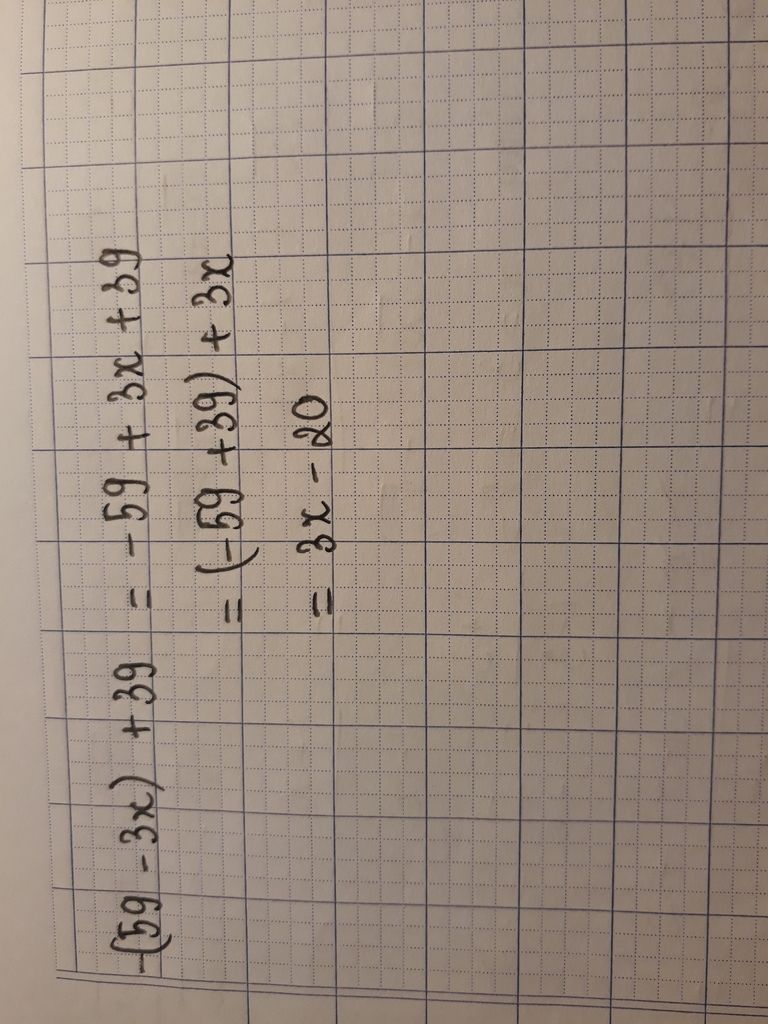 -(59 - 3x) + 39 = - 59 + 3x + 39
= (- 59 + 39) + 3x
= 3x - 20